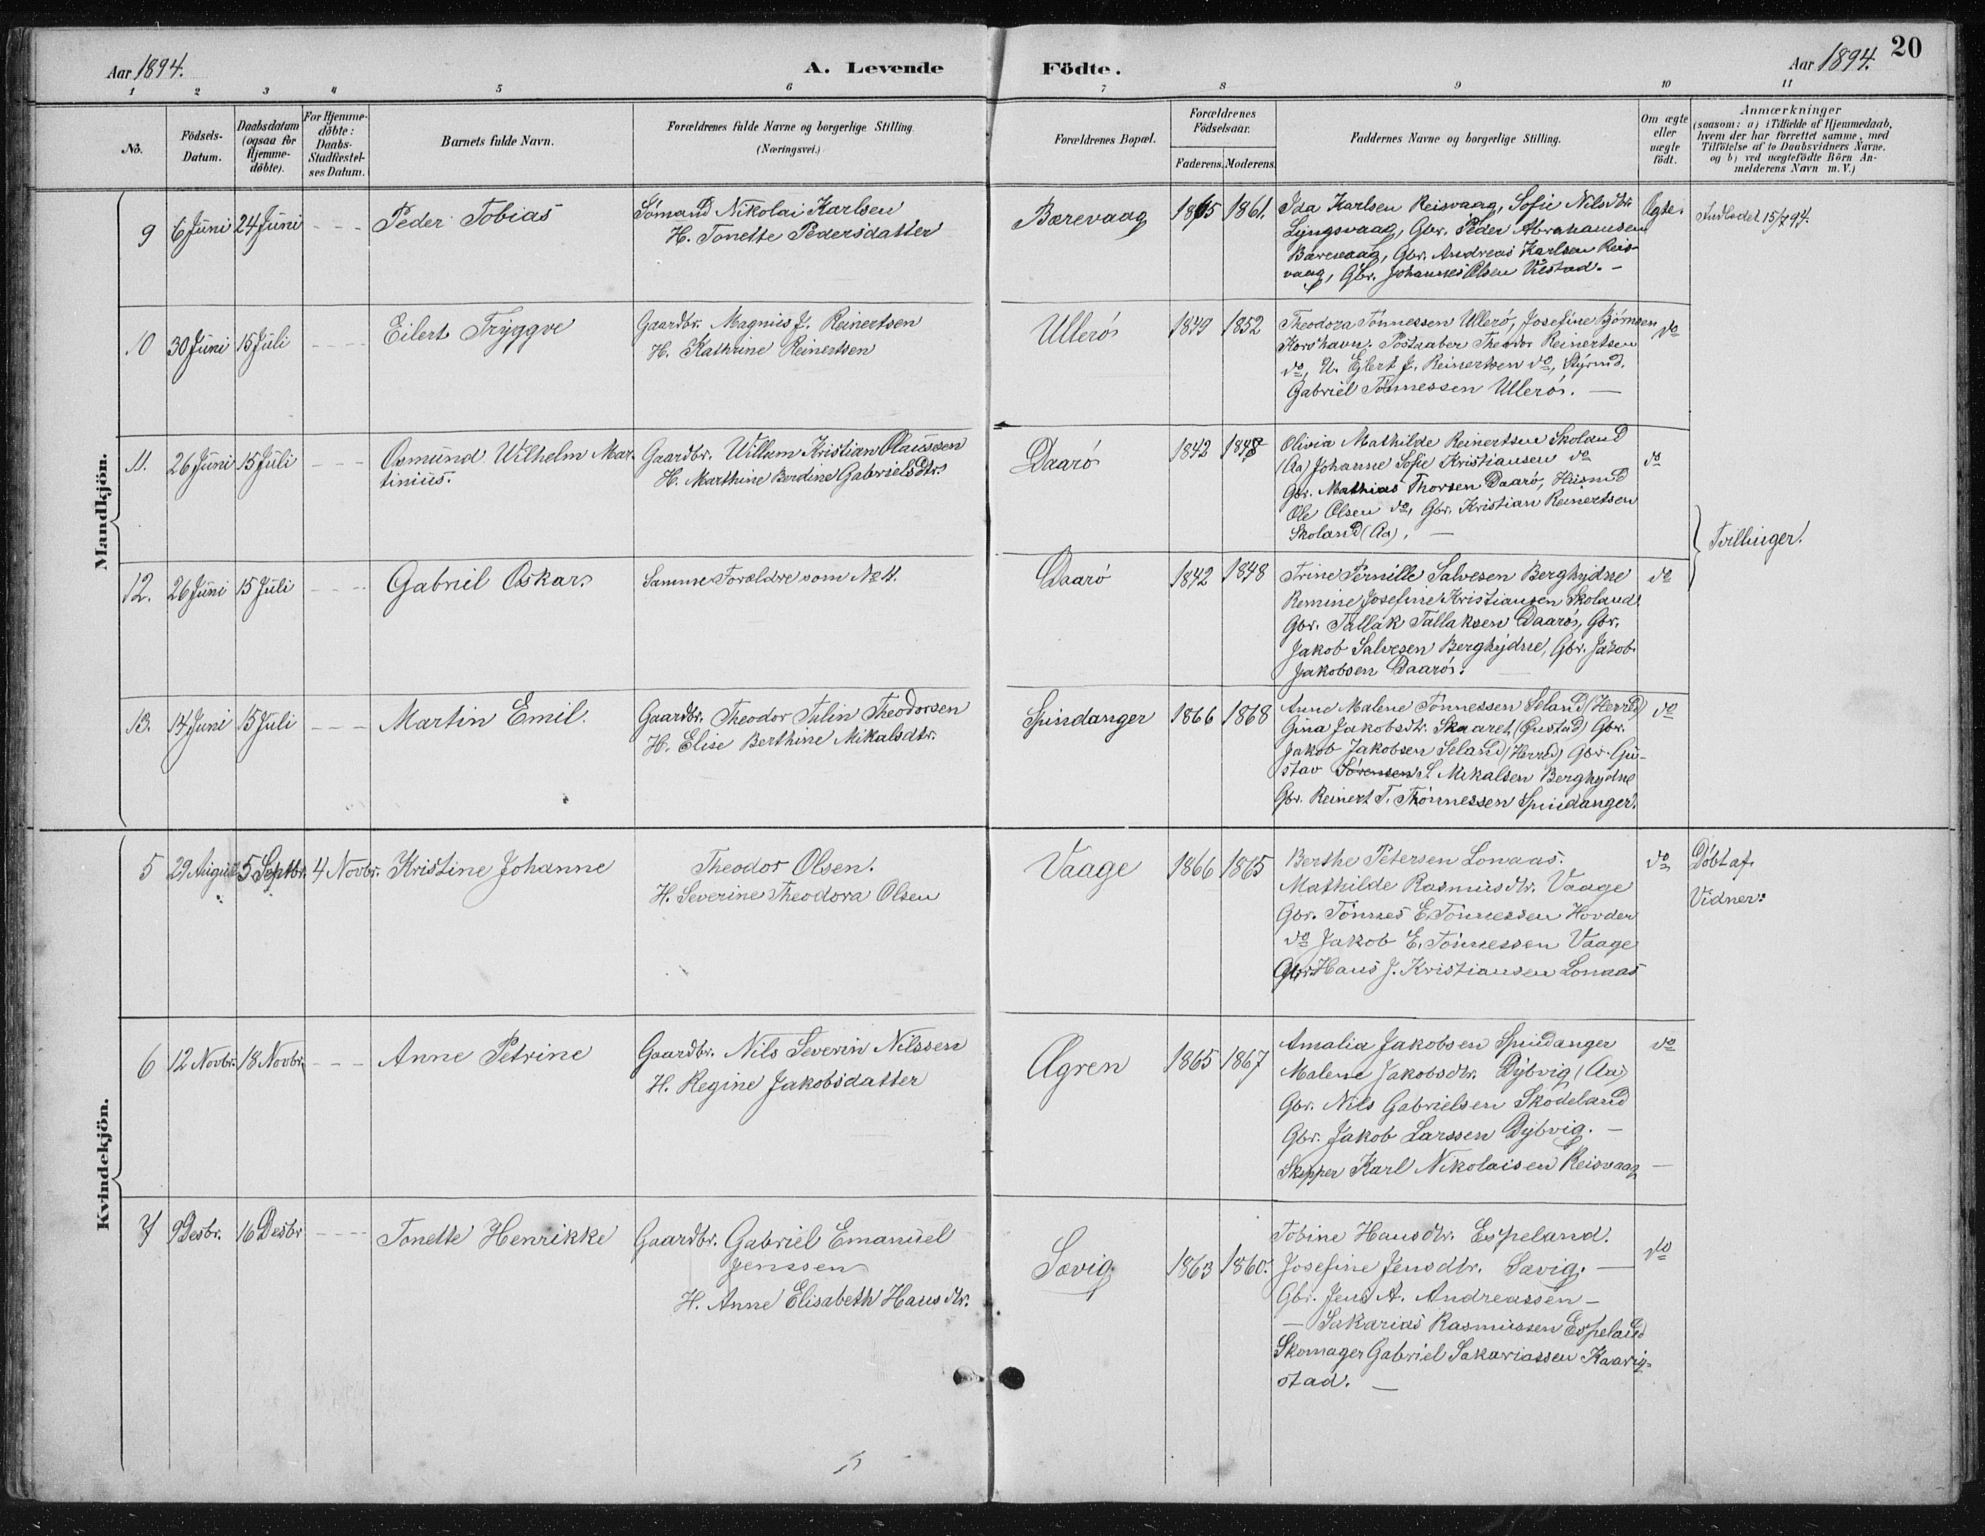 20
Aar 1894.
A. Levende
Födte.
Aar 1894.
1 2 3 4 5 6 7 8 9 10 11
No.
Födsels-
Datum.
Daabsdatum
(ogsaa for
Hjemme-
döbte).
For Hjemme-
döbte:
Daabs-
Stadfæstel-
ses Datum.
Barnets fulde Navn.
Forældrenes fulde Navne og borgerlige Stilling.
(Næringsvei.)
Forældrenes Bopæl.
Forældrenes
Födselsaar.
Faderens. Moderens.
Faddernes Navne og borgerlige Stilling.
Om ægte
eller
uægte
födt.
Anmærkninger
(saasom: a) i Tilfælde af Hjemmedaab,
hvem der har forrettet samme, med
Tilföielse af to Daabsvidners Navne,
og b) ved uægtefödte Börn An-
melderens Navn m. V.)
Mandkjön.
9
6 Juni
24 Juni
Peder Tobias
Sömand Nikolai Karlsen
H. Tonette Pedersdatter
Bærevaag
1865
1861.
Ida Karlsen Reisvaag, Sofie Nilsdtr.
Lyngsvaag, Gbr. Peder Abrahamsen
Bærevaag, Gbr. Andreas Karlsen Reis-
vaag, Gbr. Johannes Olsen Viestad. -
Ægte.
Indledet 15/7 94.
10
30 Juni
15 Juli
Eilert Tryggve
Gaardbr. Magnus J. Reinertsen
H. Kathrine Reinertsen
Ullerö
1849
1852
Theodora Tönnessen Ullerö, Josefine Björnsen
Korshavn. Postaaber Theodor Reinertsen
do, U. Eglert J. Reinertsen do, Styrmd.
Gabriel Tönnessen Ullerö. —
do
11.
26 Juni
15 Juli
Osmund Wilhelm Mar-
tinius.
Gaardbr. Willam Kristian Olaussen
H. Marthine Berdine Gabrielsdtr.
Daarö
1842
1848
Olivia Mathilde Reinertsen Skoland
(Aa) Johanne Sofie Kristiansen do
Gbr. Mathias Thorsen Daarö, Husmd
Ole Olsen do, Gbr. Kristian Reinertsen
Skoland (Aa). —
do
Tvillinger.
12.
26 Juni
15 Juli
Gabriel Oskar
Samme Forældre som No 11.
Daarö
1842
1848
Trine Pernille Salvesen Berghydne
Remine Josefine Kristiansen Skoland
Gbr. Tallak Tallaksen Daarö, Gbr.
Jakob Salvesen Berghydne, Gbr. Jakob
Jakobsen Daarö.
do
13.
14 Juni
15 Juli
Martin Emil.
Gaardbr. Theodor Tulin Theodorsen
H. Elise Berthine Mikalsdtr.
Spindanger
1866
1868
Anne Malene Tönnessen Seland (Herred)
Gina Jakobsdtr. Skaaret (Oustad) Gbr.
Jakob Jakobsen Seland (Herred) Gbr. Gu-
stav Sörensen S. Mikalsen Berghydne
Gbr. Reinert T. Thönnessen Spindanger.
do
Kvindekjön.
5
29 August
5 Septbr.
4 Novbr.
Kristine Johanne
Theodor Olsen.
H. Severine Theodora Olsen
Vaage
1866
1865
Berthe Petersen Lonaas.
Mathilde Rasmusdtr. Vaage
Gbr. Tönnes E. Tönnessen Hovder
do Jakob E. Tönnessen Vaage
Gbr. Hans J. Kristiansen Lonaas
do
Döbt af
Vidner:
6
12 Novbr.
18 Novbr.
Anne Petrine
Gaardbr. Nils Severin Nilssen
H. Regine Jakobsdatter
Agren
1865
1867
Amalia Jakobsen Spindanger
Malene Jakobsdtr. Dybvig (Aa)
Gbr. Nils Gabrielsen Sködeland
Gbr. Jakob Larssen Dybvig. —
Skipper Karl Nikolaisen Reisvaag —
do
7
9 Desbr.
16 Desbr
Tonette Henrikke
Gaardbr. Gabriel Emanuel
Jenssen
H. Anne Elisabeth Hansdtr.
Sævig
1863
1860.
Tobine Hansdtr. Espeland.
Josefine Jensdtr. Sævig. —
Gbr. Jens A. Andreassen —
— Sakarias Rasmussen Espeland
Skomager Gabriel Sakariassen Kaarig-
stad. —
do